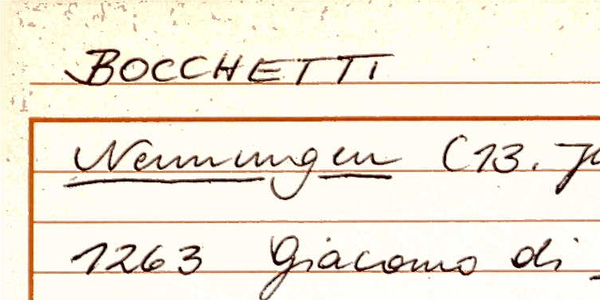 BOCCHETTI
Nennungen (13.
1263 Giacomo di